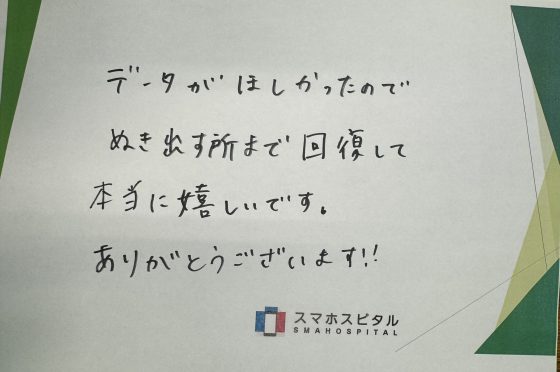 データがほしかったので
ぬき出す所まで回復して
本当に嬉しいです。
ありがとうございます!!
スマホスピタル
SMAHOSPITAL